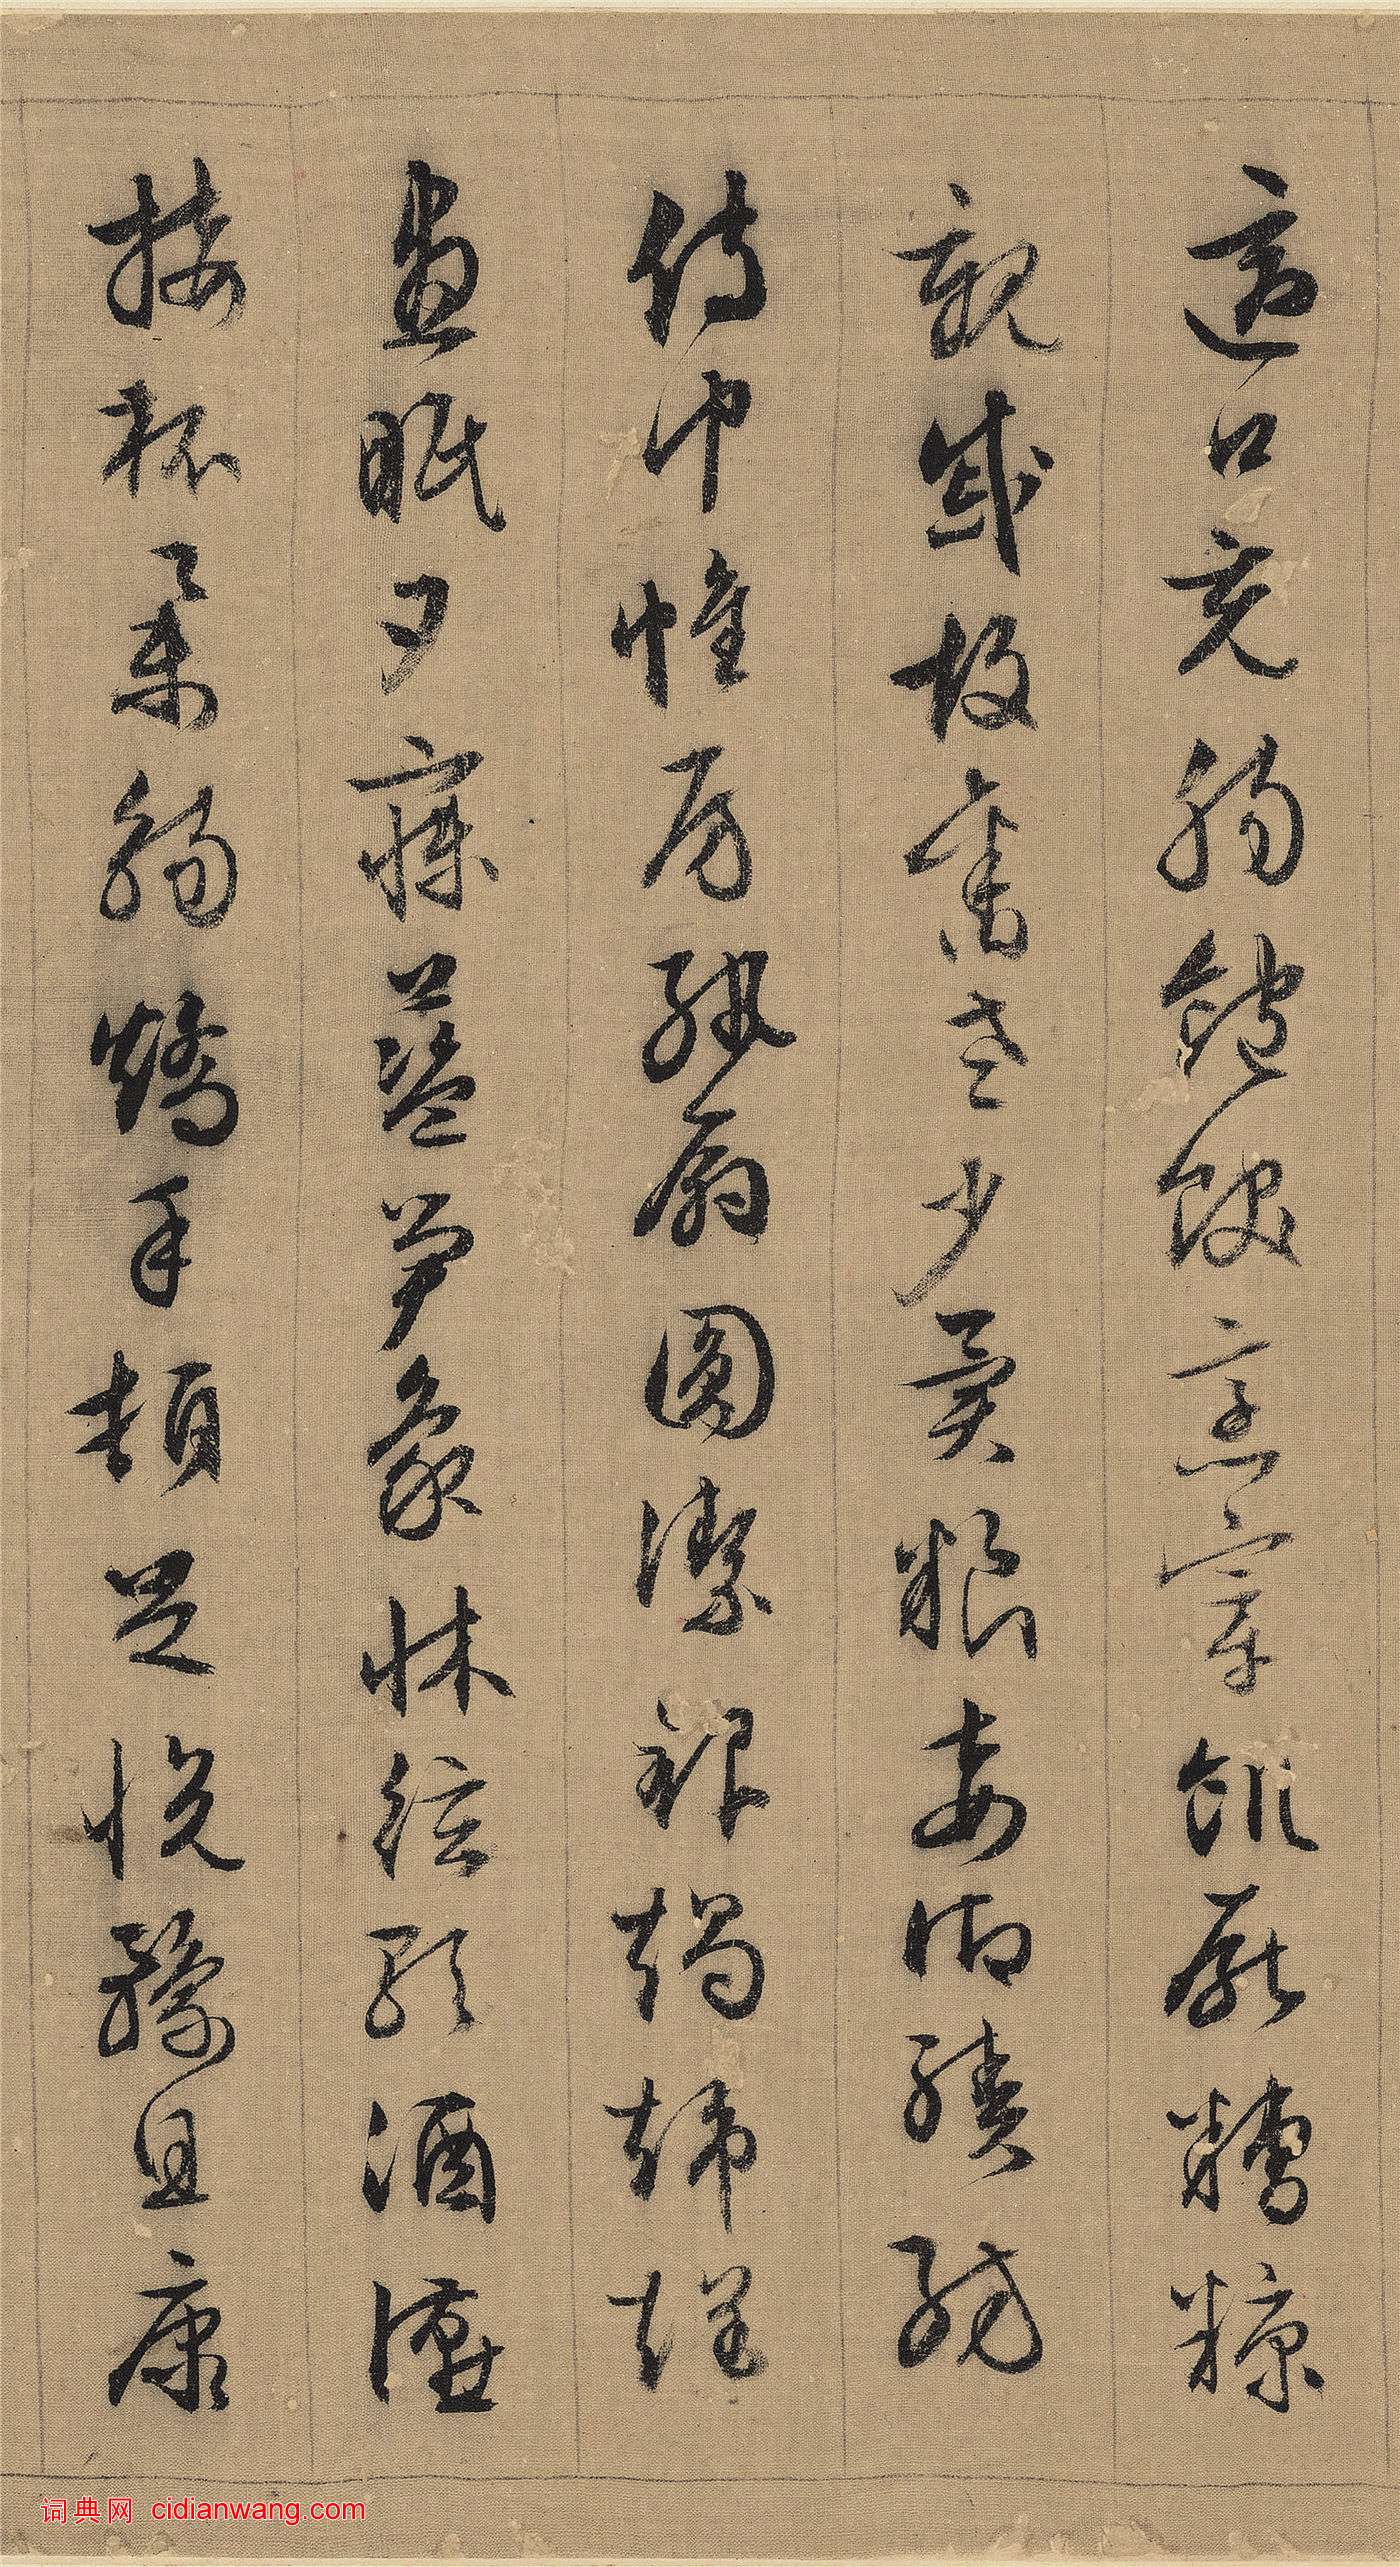 適口充腸飽飫烹宰飢厭糟糠
親戚故舊老少異粮妾御績紡
侍巾帷房紈扇圓潔銀燭煒煌
晝眠夕寐藍笋象牀弦歌酒讌
接杯舉觴矯手頓足悅豫且康
词典网 cidianwang.com